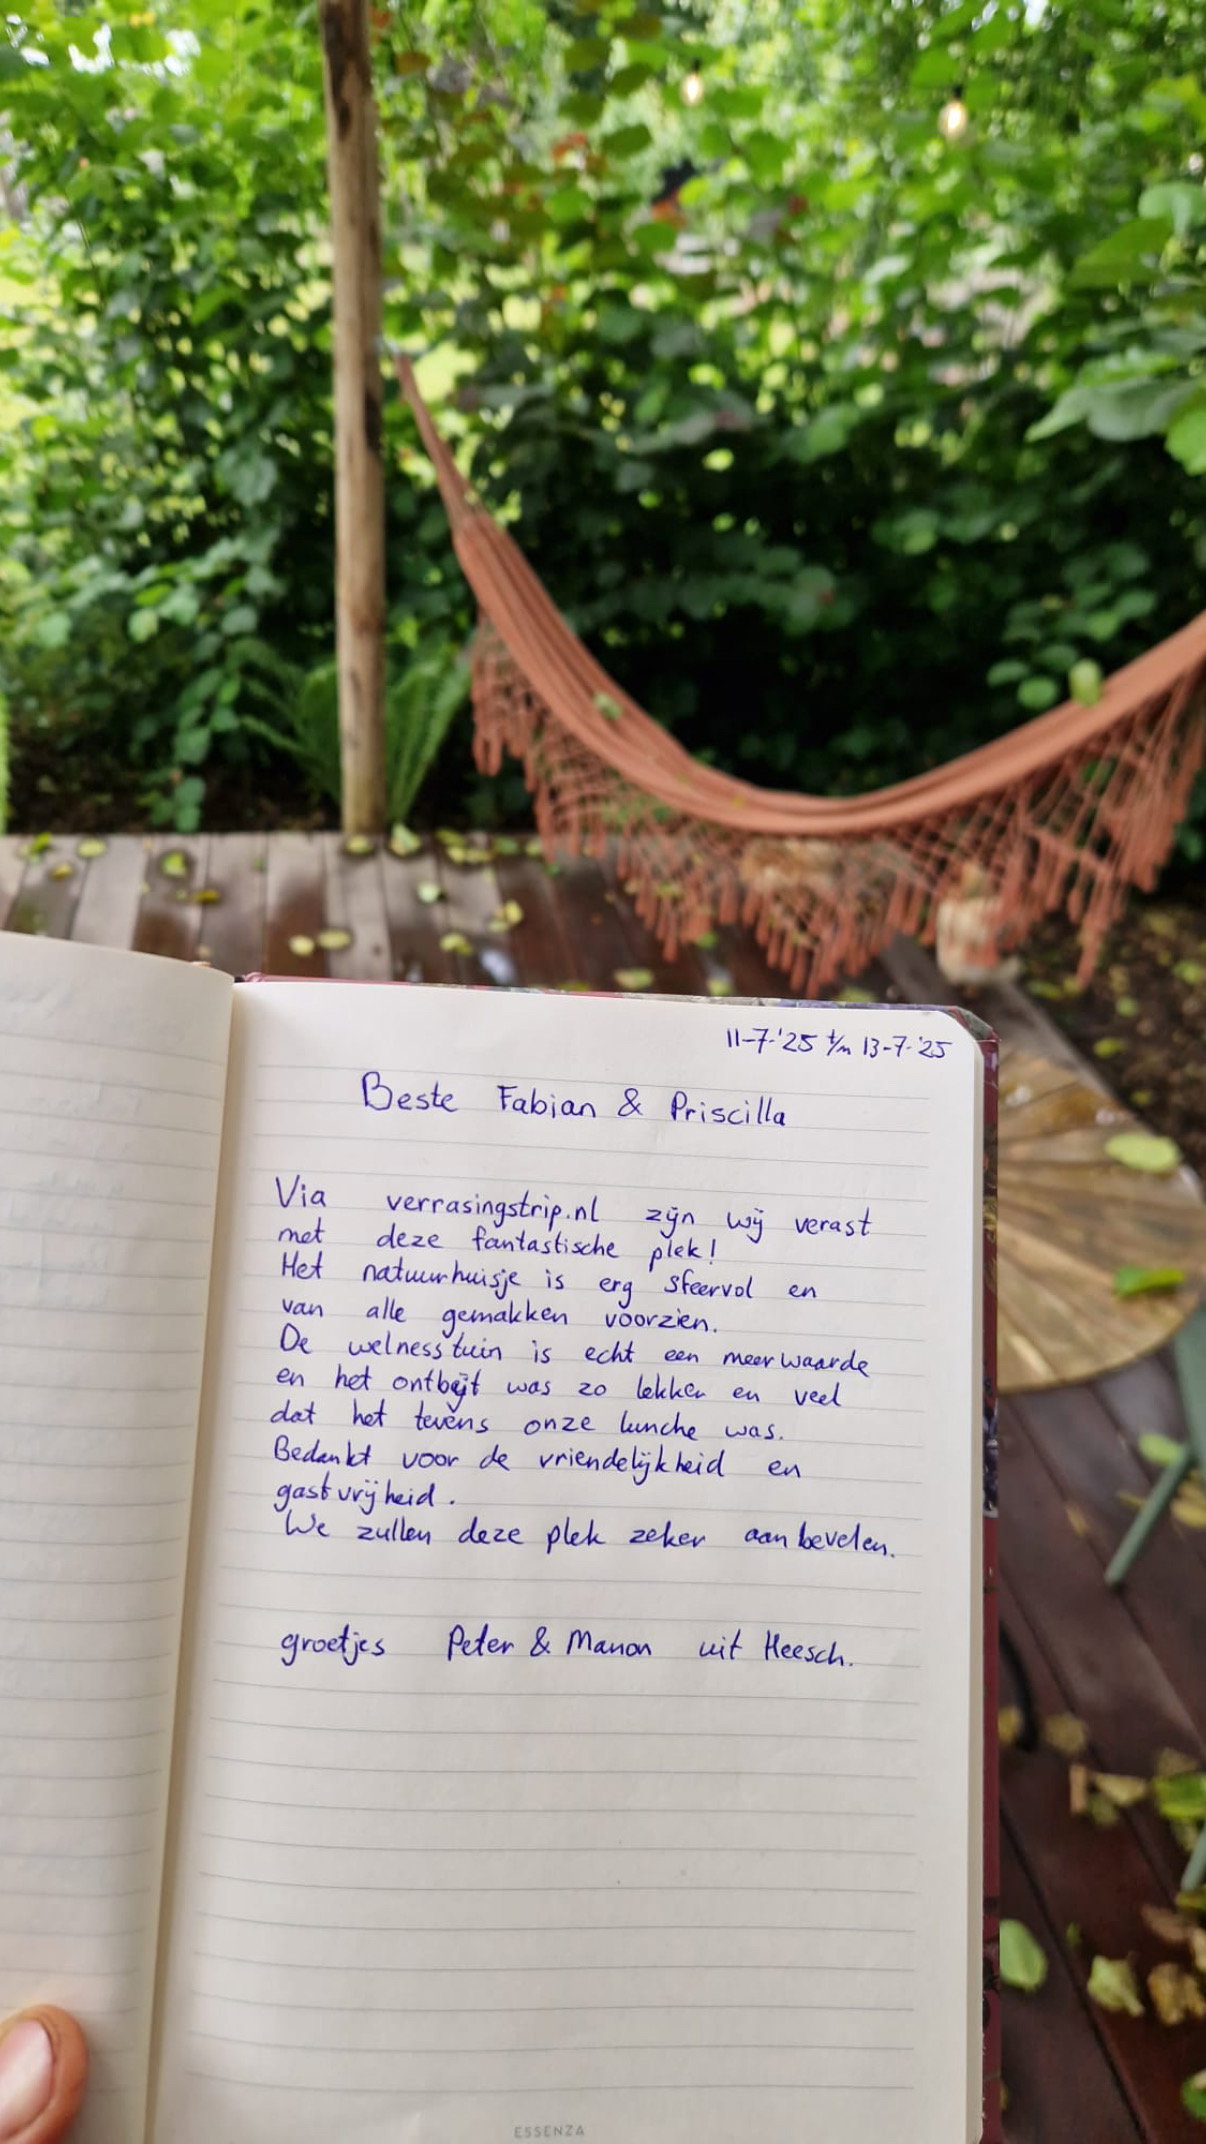 11-7-'25 t/m 13-7-'25
Beste Fabian & Priscilla
Via verrasingstrip.nl zijn wij verast
met deze fantastische plek!
Het natuurhuisje is erg sfeervol en
van alle gemakken voorzien.
De welness tuin is echt een meerwaarde
en het ontbijt was zo lekker en veel
dat het tevens onze lunche was.
Bedankt voor de vriendelijkheid en
gastvrijheid.
We zullen deze plek zeker aanbevelen.
groetjes Peter & Manon uit Heesch.
ESSENZA